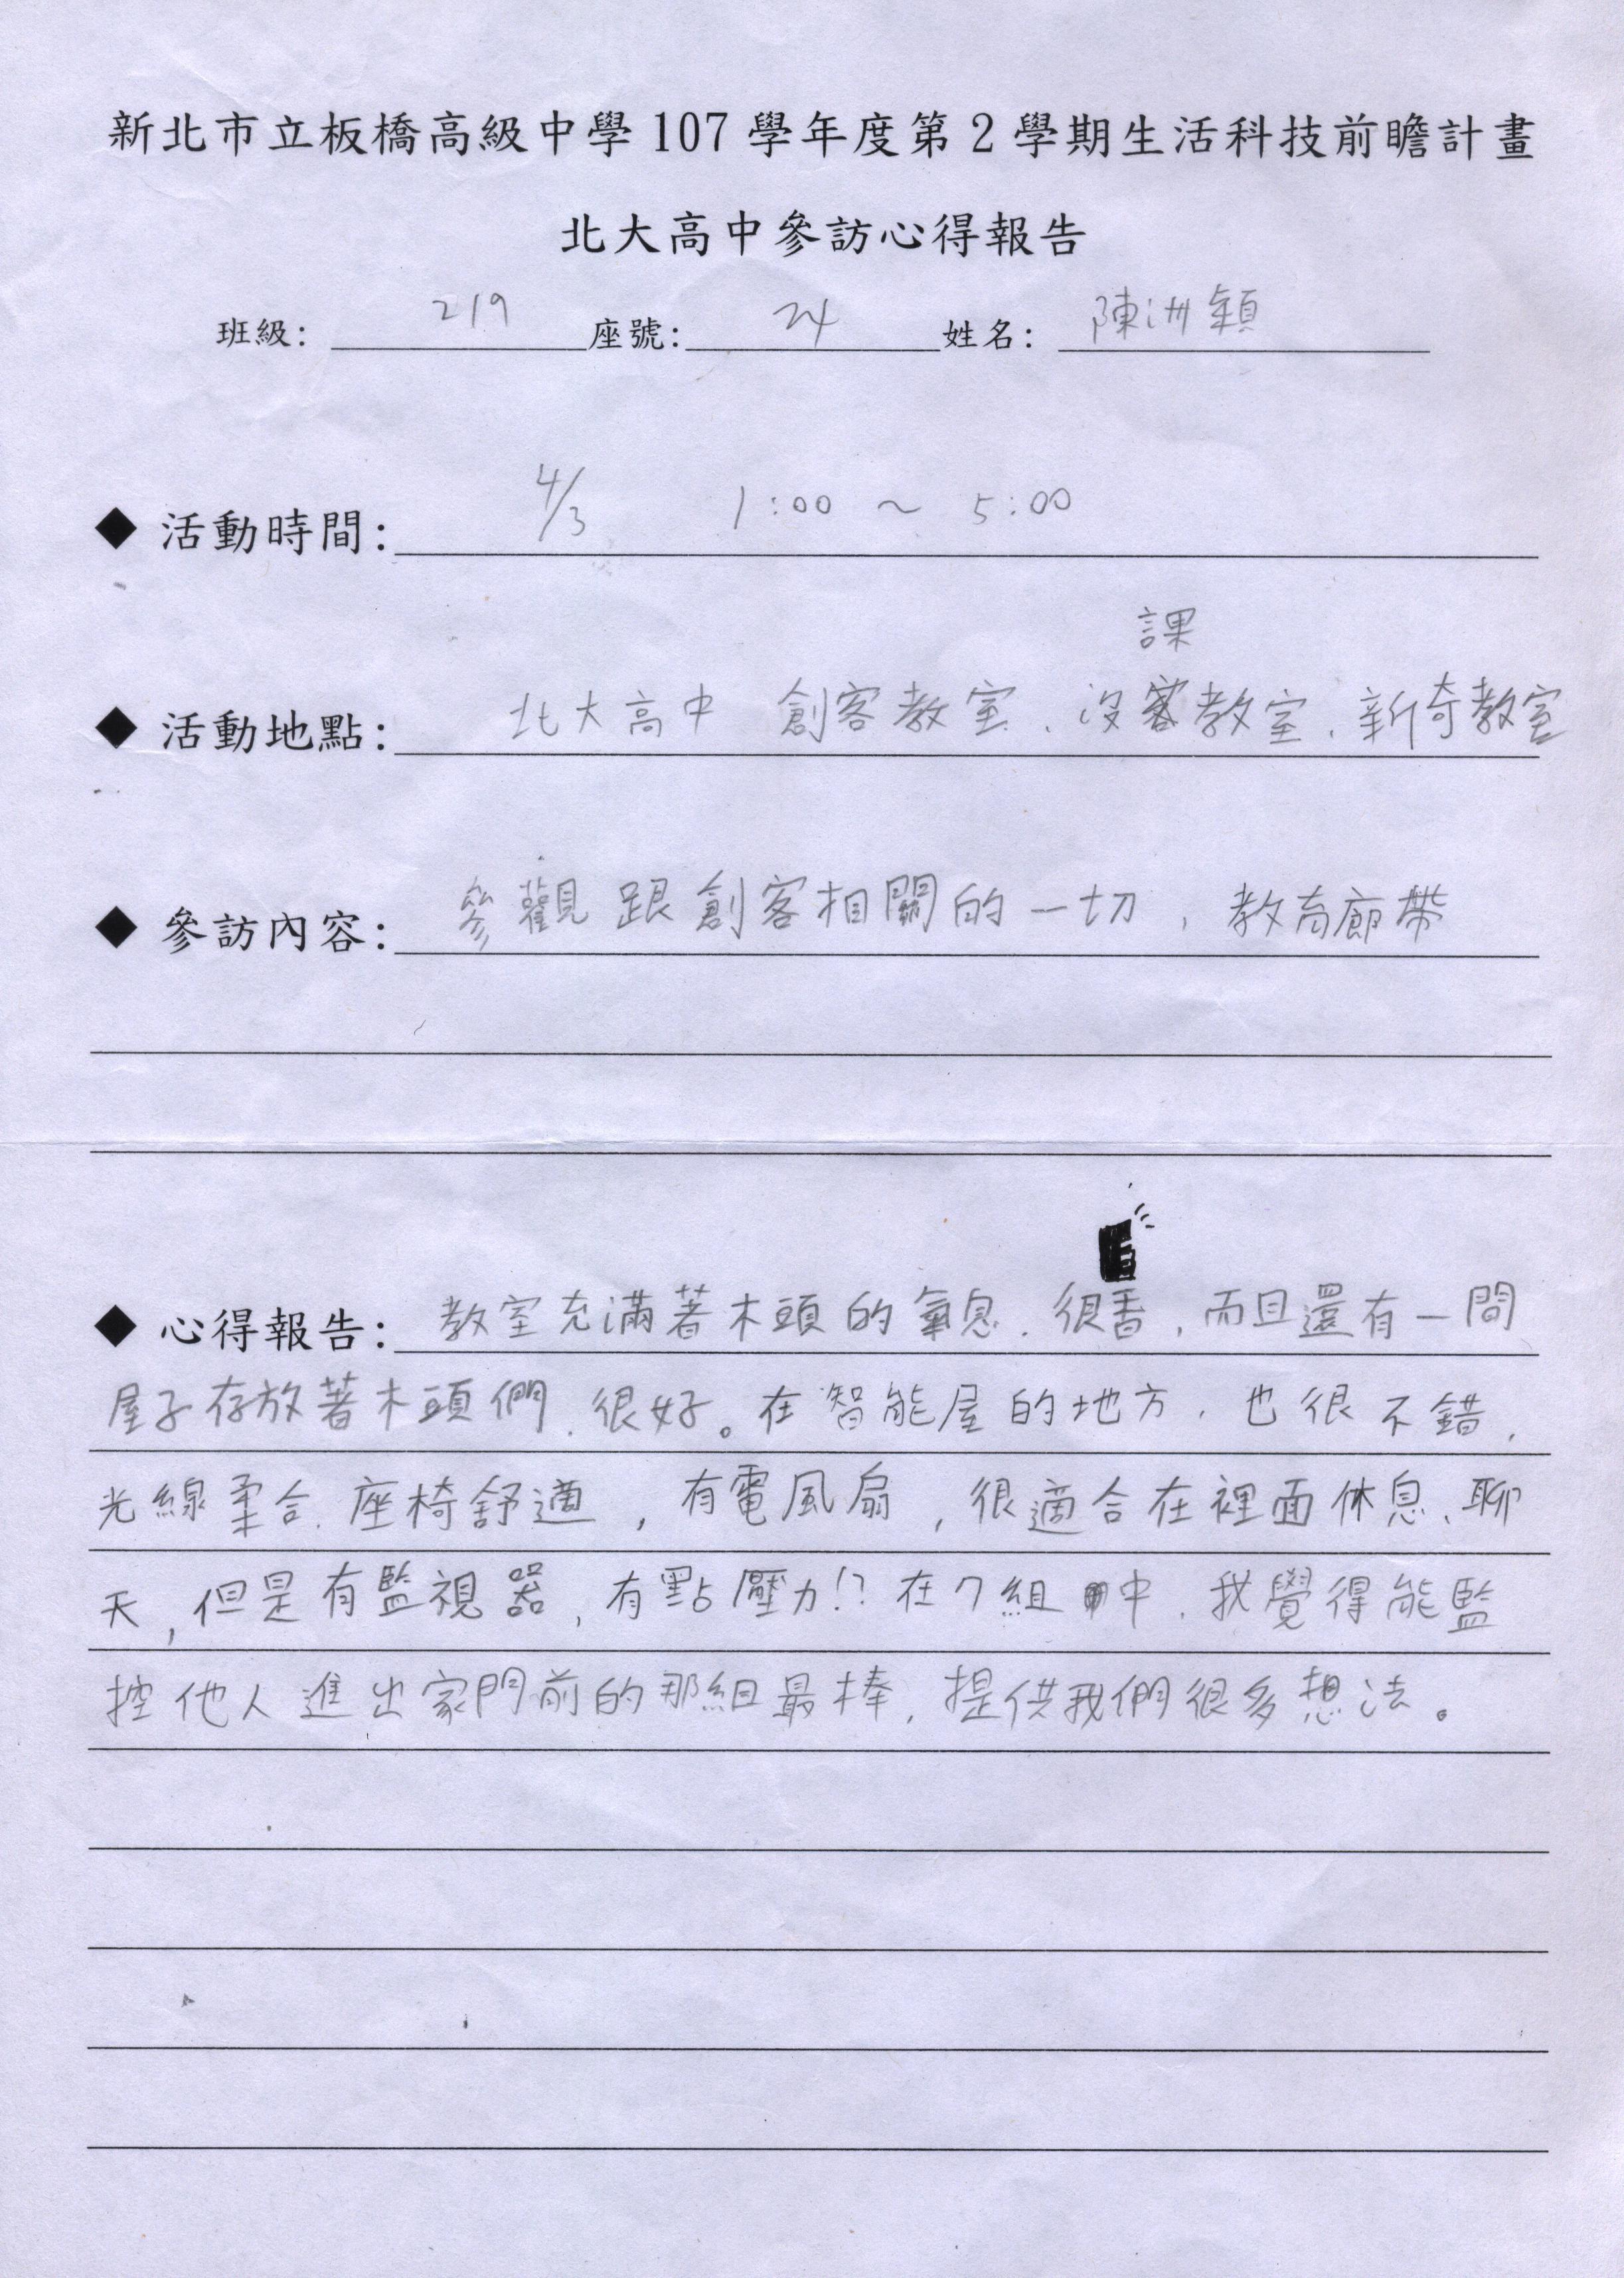 新北市立板橋高級中學107學年度第2學期生活科技前瞻計畫
北大高中參訪心得報告
班級: 219 座號: 24 姓名: 陳洲穎
◆ 活動時間: 4/3 1:00 ~ 5:00
課
◆ 活動地點: 北大高中 創客教室、沒教室、新奇教室
◆ 參訪內容: 參觀跟創客相關的一切,教育廊帶
◆ 心得報告: 教室充滿著木頭的氣息、很香,而且還有一間
屋子存放著木頭們、很好。在智能屋的地方,也很不錯,
光線柔合、座椅舒適,有電風扇,很適合在裡面休息、聊
天,但是有監視器,有點壓力!?在7組中,我覺得能監
控他人進出家門前的那組最棒,提供我們很多想法。